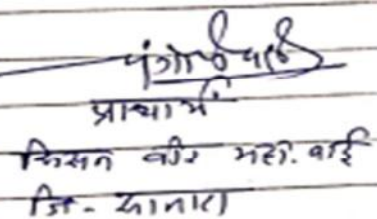 प्राचार्य
किसन वीर महा. वाई
जि - सातारा